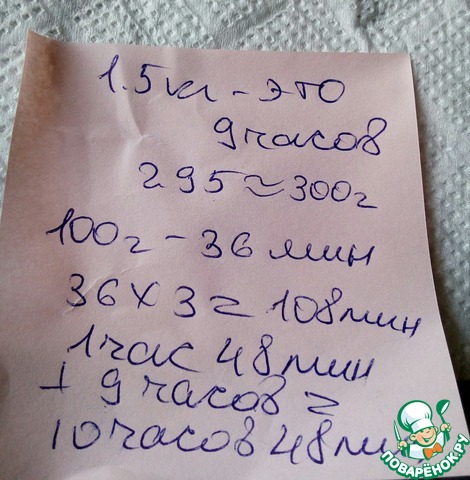 1.5кг - это
9 часов
295 ≈ 300г
100г - 36 мин
36 х 3 = 108 мин
1 час 48 мин
+ 9 часов =
10 часов 48 ми
ПОВАРЁНОК.РУ